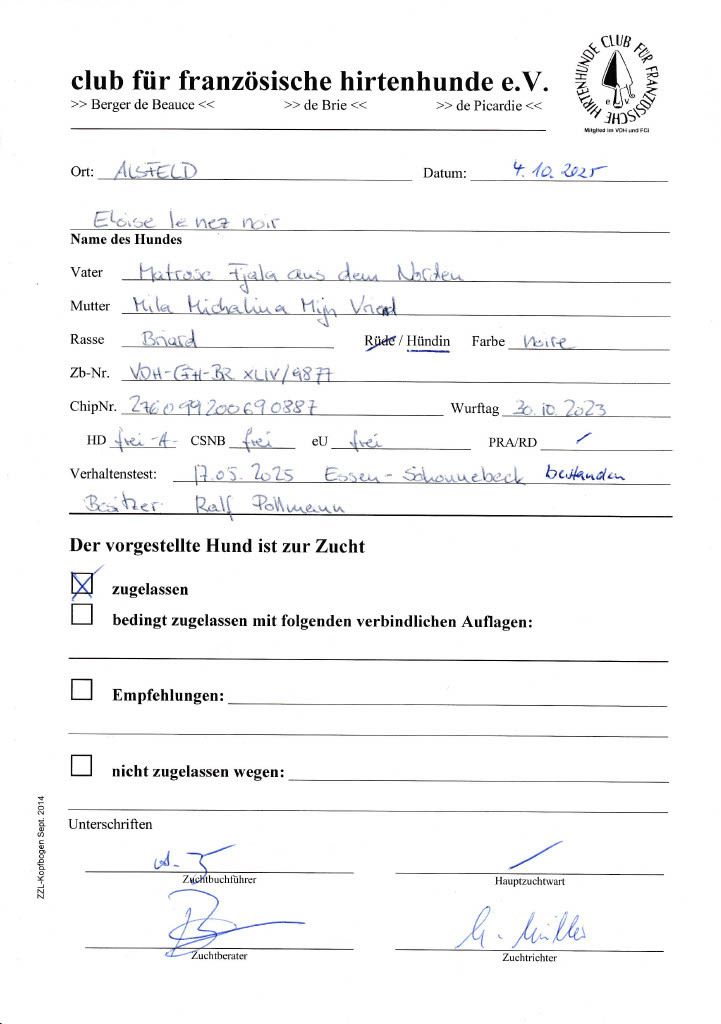 club für französische hirtenhunde e.V.
>> Berger de Beauce << >> de Brie << >> de Picardie <<
CLUB FÜR FRANZÖSISCHE HIRTENHUNDE e.V.
Mitglied im VDH und FCI
Ort: ALSFELD Datum: 4.10.2025
Eloise le nez noir
Name des Hundes
Vater Matrose Fjala aus dem Norden
Mutter Mila Michalina Mijn Vriend
Rasse Briard Rüde / Hündin Farbe noire
Zb-Nr. VDH-CFH-BR XLIV/9877
ChipNr. 276099200690887 Wurftag 30.10.2023
HD frei -A- CSNB frei eU frei PRA/RD /
Verhaltenstest: 17.05.2025 Essen-Schonnebeck bestanden
Besitzer: Ralf Pollmann
Der vorgestellte Hund ist zur Zucht
zugelassen
bedingt zugelassen mit folgenden verbindlichen Auflagen:
Empfehlungen:
nicht zugelassen wegen:
Unterschriften
Zuchtbuchführer Hauptzuchtwart
Zuchtberater Zuchtrichter
ZZL-Kopfbogen Sept. 2014